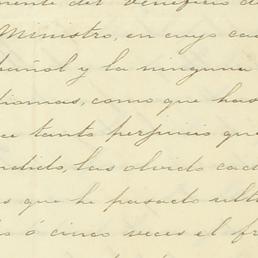 mente del beneficio d
Ministro, en cuyo ca
pañol y la ninguna
diomas, como que has
ce tanto perjuicio qu
ndido, las olvido cad
s que he pasado ulti
o ó cinco veces el fr